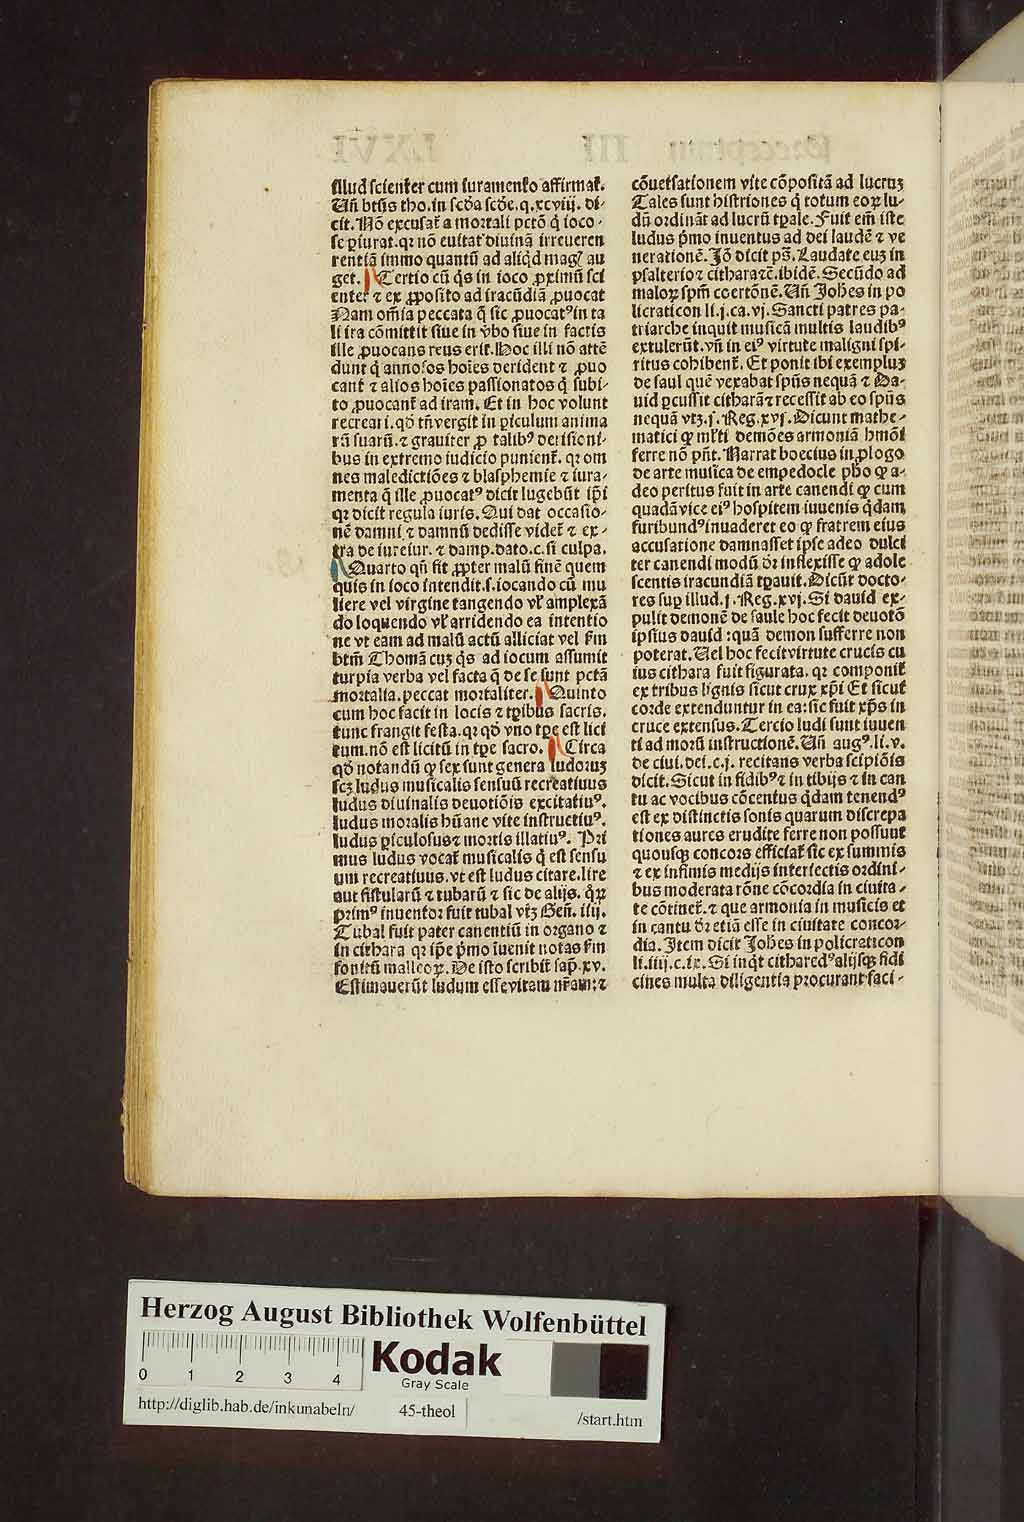 illud scienter cum iuramento affirmat̃.
Uñ btũs tho. in scḋa scḋe. q. xcviij. di-
cit. Nõ excusat̃ a mortali pctõ q̇ ioco-
se ꝑiurat. qꝛ nõ euitat diuinã irreueren
rentiã immo quantũ ad aliq̇d magꝭ au
get. Tertio cũ q̇s in ioco ꝓximũ sci
enter ⁊ ex ꝓposito ad iracũdiã ꝓuocat
Nam om̃ia peccata q̄ sic ꝓuocatꝰ in ta
li ira cõmittit siue in v̾bo siue in factis
ille ꝓuocans reus erit̃. Hoc illi nõ attẽ
dunt q̇ annosos hoĩes derident ⁊ ꝓuo
cant ⁊ alios hoĩes passionatos q̇ subi-
to ꝓuocant̃ ad iram. Et in hoc volunt
recreari. qḋ tñ vergit in ꝑiculum anima
rũ suarũ. ⁊ grauiter ꝓ talibꝰ derisioni-
bus in extremo iudicio punient̃. qꝛ om
nes maledictiões ⁊ blasphemie ⁊ iura-
menta q̄ ille ꝓuocatꝰ dicit lugebũt ip̃i
qꝛ dicit regula iuris. Qui dat occasio-
nẽ damni ⁊ damnũ dedisse videt̃ ⁊ ex-
tra de iureiur. ⁊ damp. dato. c. si culpa.
Quarto qñ fit ꝓpter malũ finẽ quem
quis in ioco intendit. s. iocando cũ mu
liere vel virgine tangendo vl̃ amplexã
do loquendo vl̃ arridendo ea intentio
ne vt eam ad malũ actũ alliciat vel ẜm
btm̃ Thomã cuꝫ q̇s ad iocum assumit
turpia verba vel facta q̄ de se sunt pctã
mortalia. peccat mortaliter. Quinto
cum hoc facit in locis ⁊ tꝑibus sacris.
tunc frangit festa. qꝛ qḋ vno tꝑe est lici
tum. nõ est licitũ in tꝑe sacro. Circa
qḋ notandũ ꝙ sex sunt genera ludoruꝫ
scꝫ ludus musicalis sensuũ recreatiuus
ludus diuinalis deuotiõis excitatiuꝰ.
ludus moralis hũane vite instructiuꝰ.
ludus ꝑiculosus ⁊ mortis illatiuꝰ. Pri
mus ludus vocat̃ musicalis q̇ est sensu
um recreatiuus. vt est ludus citare. lire
aut fistularũ ⁊ tubarũ ⁊ sic de alijs. q̇ꝝ
prim̃ꝰ inuentor fuit tubal vtꝫ Geñ. iiij.
Tubal fuit pater canentiũ in organo ⁊
in cithara qꝛ ip̃e p̃mo iuenit notas ẜm
sonitũ malleoꝝ. De isto scribit̃ sap̃. xv.
Estimauerũt ludum esse vitam nr̃am: ⁊
cõuersationem vite cõpositã ad lucruꝫ
Tales sunt histriones q̇ totum eoꝝ lu-
dũ ordinãt ad lucrũ tꝑale. Fuit em̃ iste
ludus p̃mo inuentus ad dei laudẽ ⁊ ve
nerationẽ. Iõ dicit ps̃. Laudate euꝫ in
psalterio ⁊ cithara ⁊c̃. ibidẽ. Secũdo ad
maloꝝ sp̃m coertõnẽ. Uñ Joh̃es in po
licraticon li. j. ca. vj. Sancti patres pa-
triarche inquit musicã multis laudibꝰ
extulerũt. vñ in eiꝰ virtute maligni spi-
ritus cohibent̃. Et ponit ibi exempluꝫ
de saul quẽ vexabat sp̃us nequã ⁊ Da-
uid ꝑcussit citharã ⁊ recessit ab eo sp̃us
nequã vtꝫ. j. Reg. xvj. Dicunt mathe-
matici ꝙ ml̃ti demões armoniã hmõi
ferre nõ pñt. Narrat boecius in ꝓlogo
de arte musica de empedocle ph̃o ꝙ a-
deo peritus fuit in arte canendi ꝙ cum
quadã vice eiꝰ hospitem iuuenis q̇dam
furibundꝰ inuaderet eo ꝙ fratrem eius
accusatione damnasset ipse adeo dulci
ter canendi modũ dr̃ inflexisse ꝙ adole
scentis iracundiã tꝑauit. Dicũt docto-
res suꝑ illud. j. Reg. xvj. Si dauid ex-
pulit demonẽ de saule hoc fecit deuotõ
ipsius dauid : quã demon sufferre non
poterat. Uel hoc fecit virtute crucis cu
ius cithara fuit figurata. qꝛ componit̃
ex tribus lignis sicut crux xp̃i Et sicut
corde extenduntur in ea: sic fuit xp̃s in
cruce extensus. Tercio ludi sunt iuuen
ti ad morũ instructionẽ. Uñ augꝰ. li. v.
de ciui. dei. c. j. recitans verba scipiõis
dicit. Sicut in fidibꝰ ⁊ in tibijs ⁊ in can
tu ac vocibus cõcentus q̇dam tenendꝰ
est ex distinctis sonis quarum discrepa
tiones aures erudite ferre non possunt
quousqꝫ concors efficiat̃ sic ex summis
⁊ ex infimis medijs interiectis ordini-
bus moderata rõne cõcordia in ciuita-
te cõtinet̃. ⁊ que armonia in musicis et
in cantu dr̃ etiã esse in ciuitate concor-
dia. Item dicit Joh̃es in policraticon
li. iiij. c. ix. Si inq̇t citharedꝰ alijsqꝫ fidi
cines multa diligentia procurant faci-
Herzog August Bibliothek Wolfenbüttel
0 1 2 3 4
Kodak
Gray Scale
http://diglib.hab.de/inkunabeln/ 45-theol /start.htm